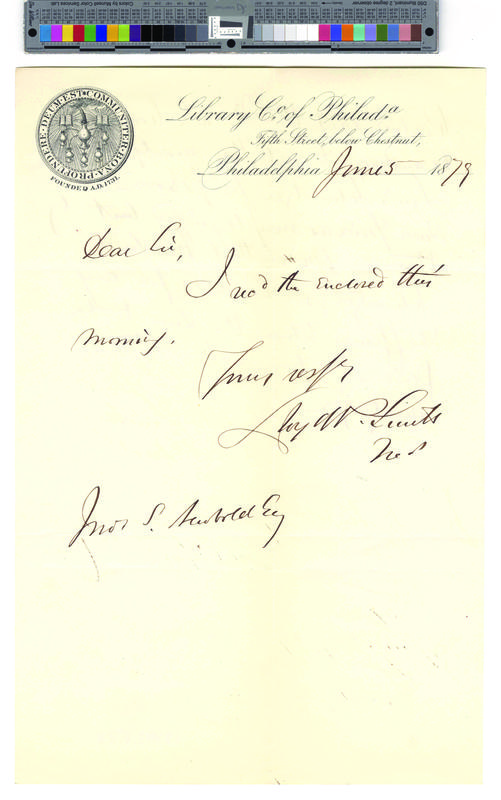 COMMUNITER·BONA·PROFUNDERE·DEUM·EST
FOUNDED A.D. 1731.
Library Co. of Philada.
Fifth Street, below Chestnut,
Philadelphia June 5 1879
Dear Sir,
I rec'd the enclosed this
morning.
Yours respy
Lloyd P. Smith
Jno. S. Newbold Esq